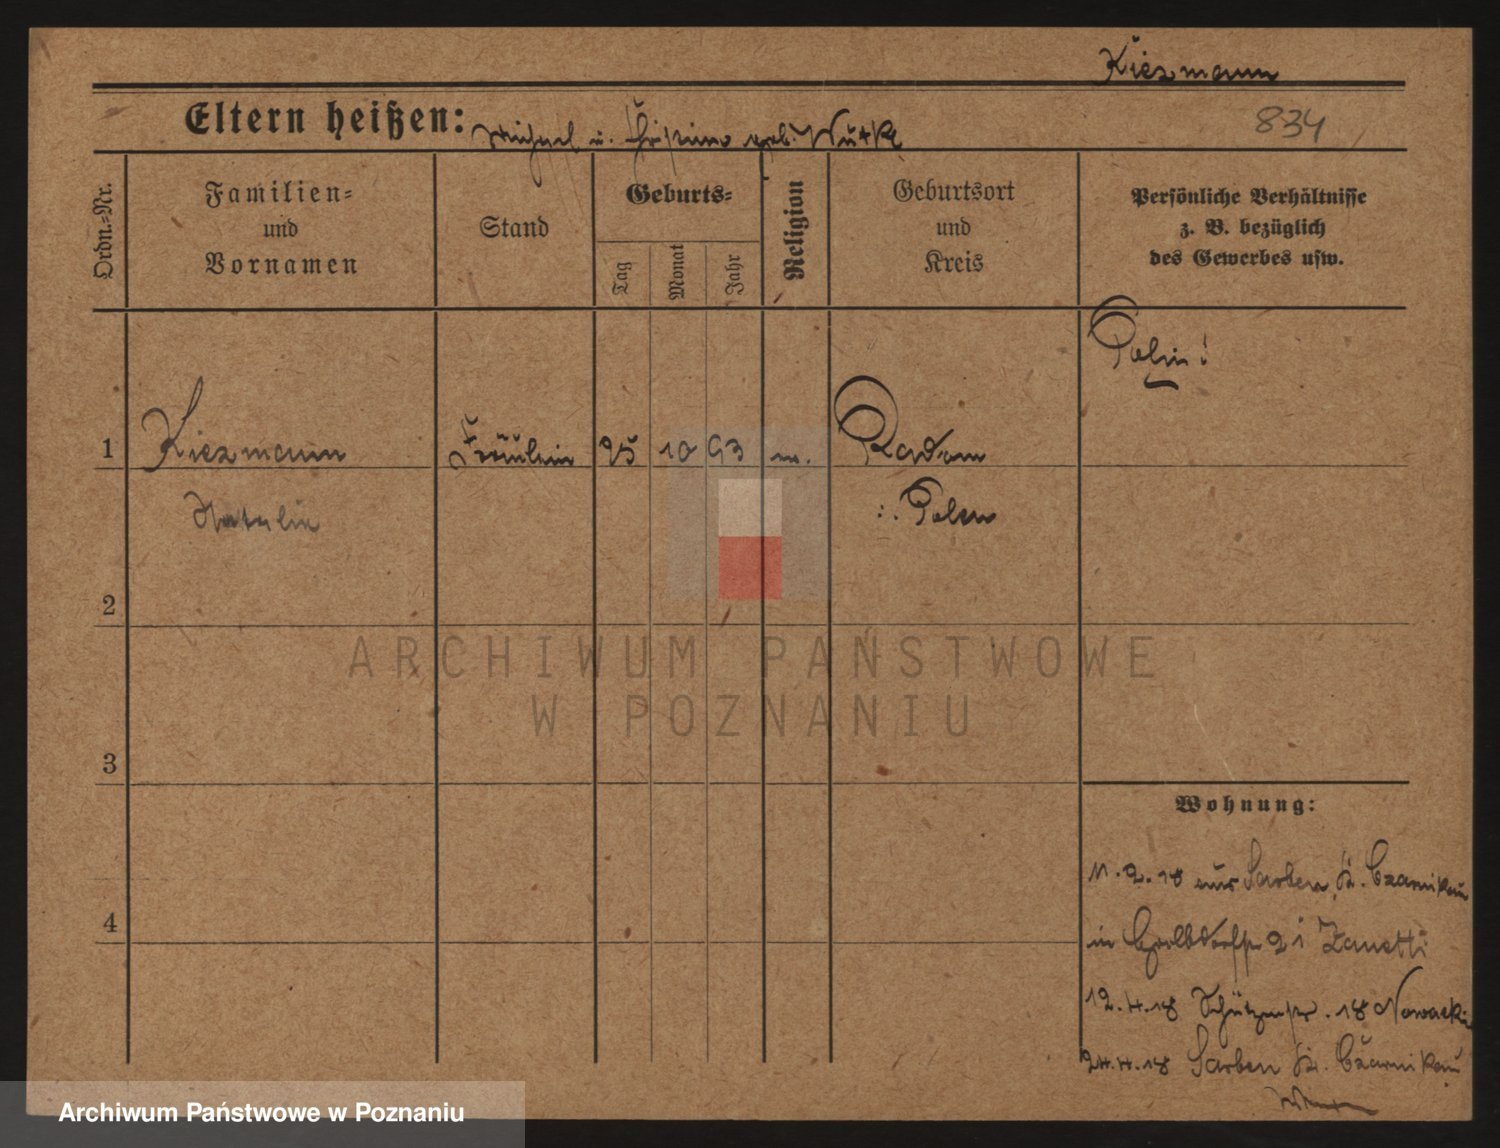 Kiezmann
834
Eltern heißen: Michael u. Christine geb. Wutke
Ordn.-Nr.
Familien-
und
Vornamen
Stand
Geburts-
Tag
Monat
Jahr
Religion
Geburtsort
und
Kreis
Persönliche Verhältnisse
z. B. bezüglich
des Gewerbes usw.
Polin!
1 Kiezmann Fräulein 25 10 93 Radom
Natalie
Polen
2
ARCHIWUM PAŃSTWOWE
W POZNANIU
3
Wohnung:
11.2.18 aus Sarben, Kr. Czarnikau
in 21 Zanetti
4
12.4.18 Schützenstr. 18 Nowacki
24.4.18 Sarben Kr. Czarnikau
Archiwum Państwowe w Poznaniu